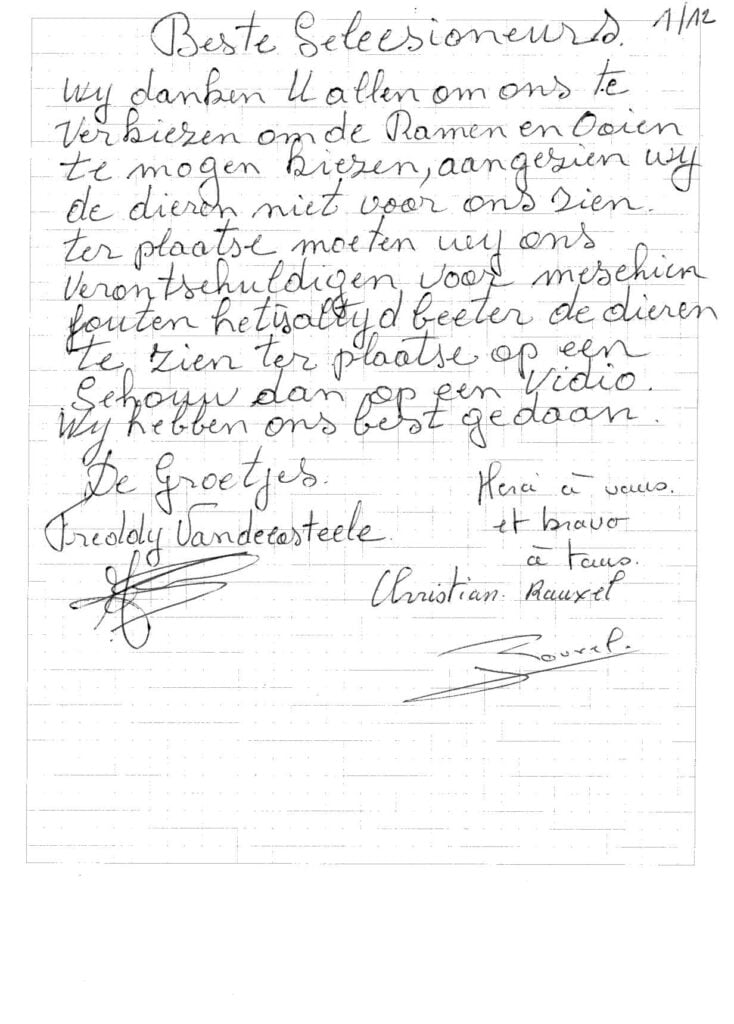 1/12
Beste Selecsioneurs.
Wy danken U allen om ons te
Verkiezen om de Ramen en Ooien
te mogen kiezen, aangezien wy
de dieren niet voor ons zien.
ter plaatse moeten wy ons
verontschuldigen voor meschien
fouten het is altyd beeter de dieren
te zien ter plaatse op een
Schouw dan op een vidio.
Wy hebben ons best gedaan.
De Groetjes.
Freddy Vandecasteele.
Merci à vous.
et bravo
à tous.
Christian Rouxel
Rouxel.